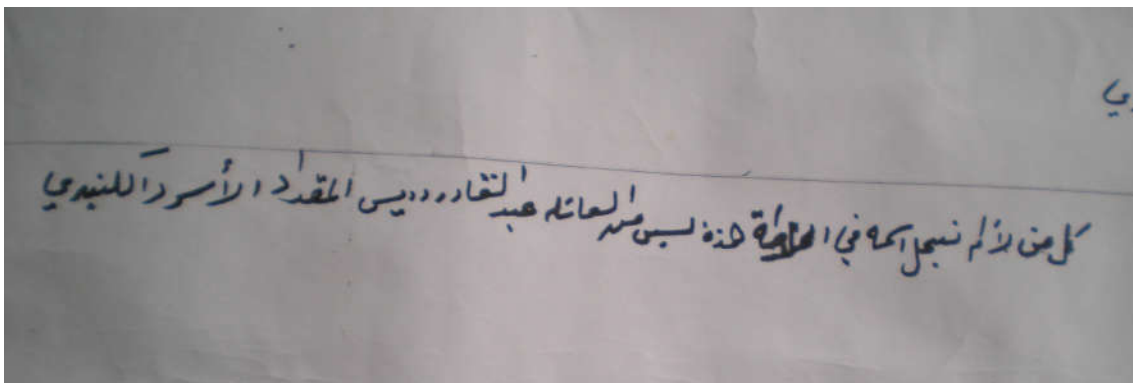 ي
كل من لم نسجل اسمه في الخارطة هذه ليس من العائله عبد القادر دريس المقداد الأسود الكنيدي